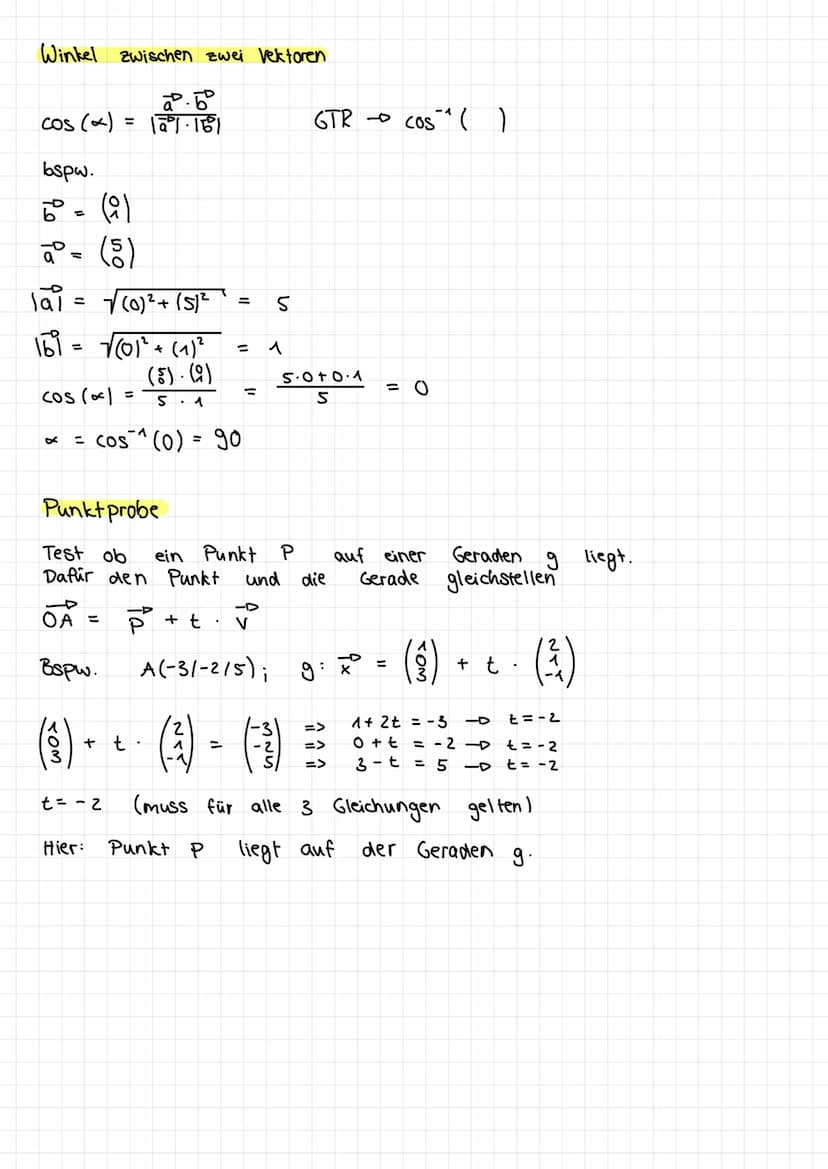 Winkel zwischen zwei Vektoren
cos(α) = (a⃗ · b⃗) / (|a⃗| · |b⃗|)    GTR → cos⁻¹( )
bspw.
b⃗ = (0 1)
a⃗ = (5 0)
|a⃗| = √((0)² + (5)²) = 5
|b⃗| = √((0)² + (1)²) = 1
cos(α) = ((5 0) · (0 1)) / (5 · 1) = (5·0+0·1) / 5 = 0
α = cos⁻¹(0) = 90
Punktprobe
Test ob ein Punkt P auf einer Geraden g liegt.
Dafür den Punkt und die Gerade gleichstellen
OA⃗ = p⃗ + t · v⃗
Bspw. A(-3/-2/5); g: x⃗ = (1 0 3) + t · (2 1 -1)
(1 0 3) + t · (2 1 -1) = (-3 -2 5)
=> 1 + 2t = -3 → t = -2
=> 0 + t = -2 → t = -2
=> 3 - t = 5 → t = -2
t = -2 (muss für alle 3 Gleichungen gelten)
Hier: Punkt P liegt auf der Geraden g.